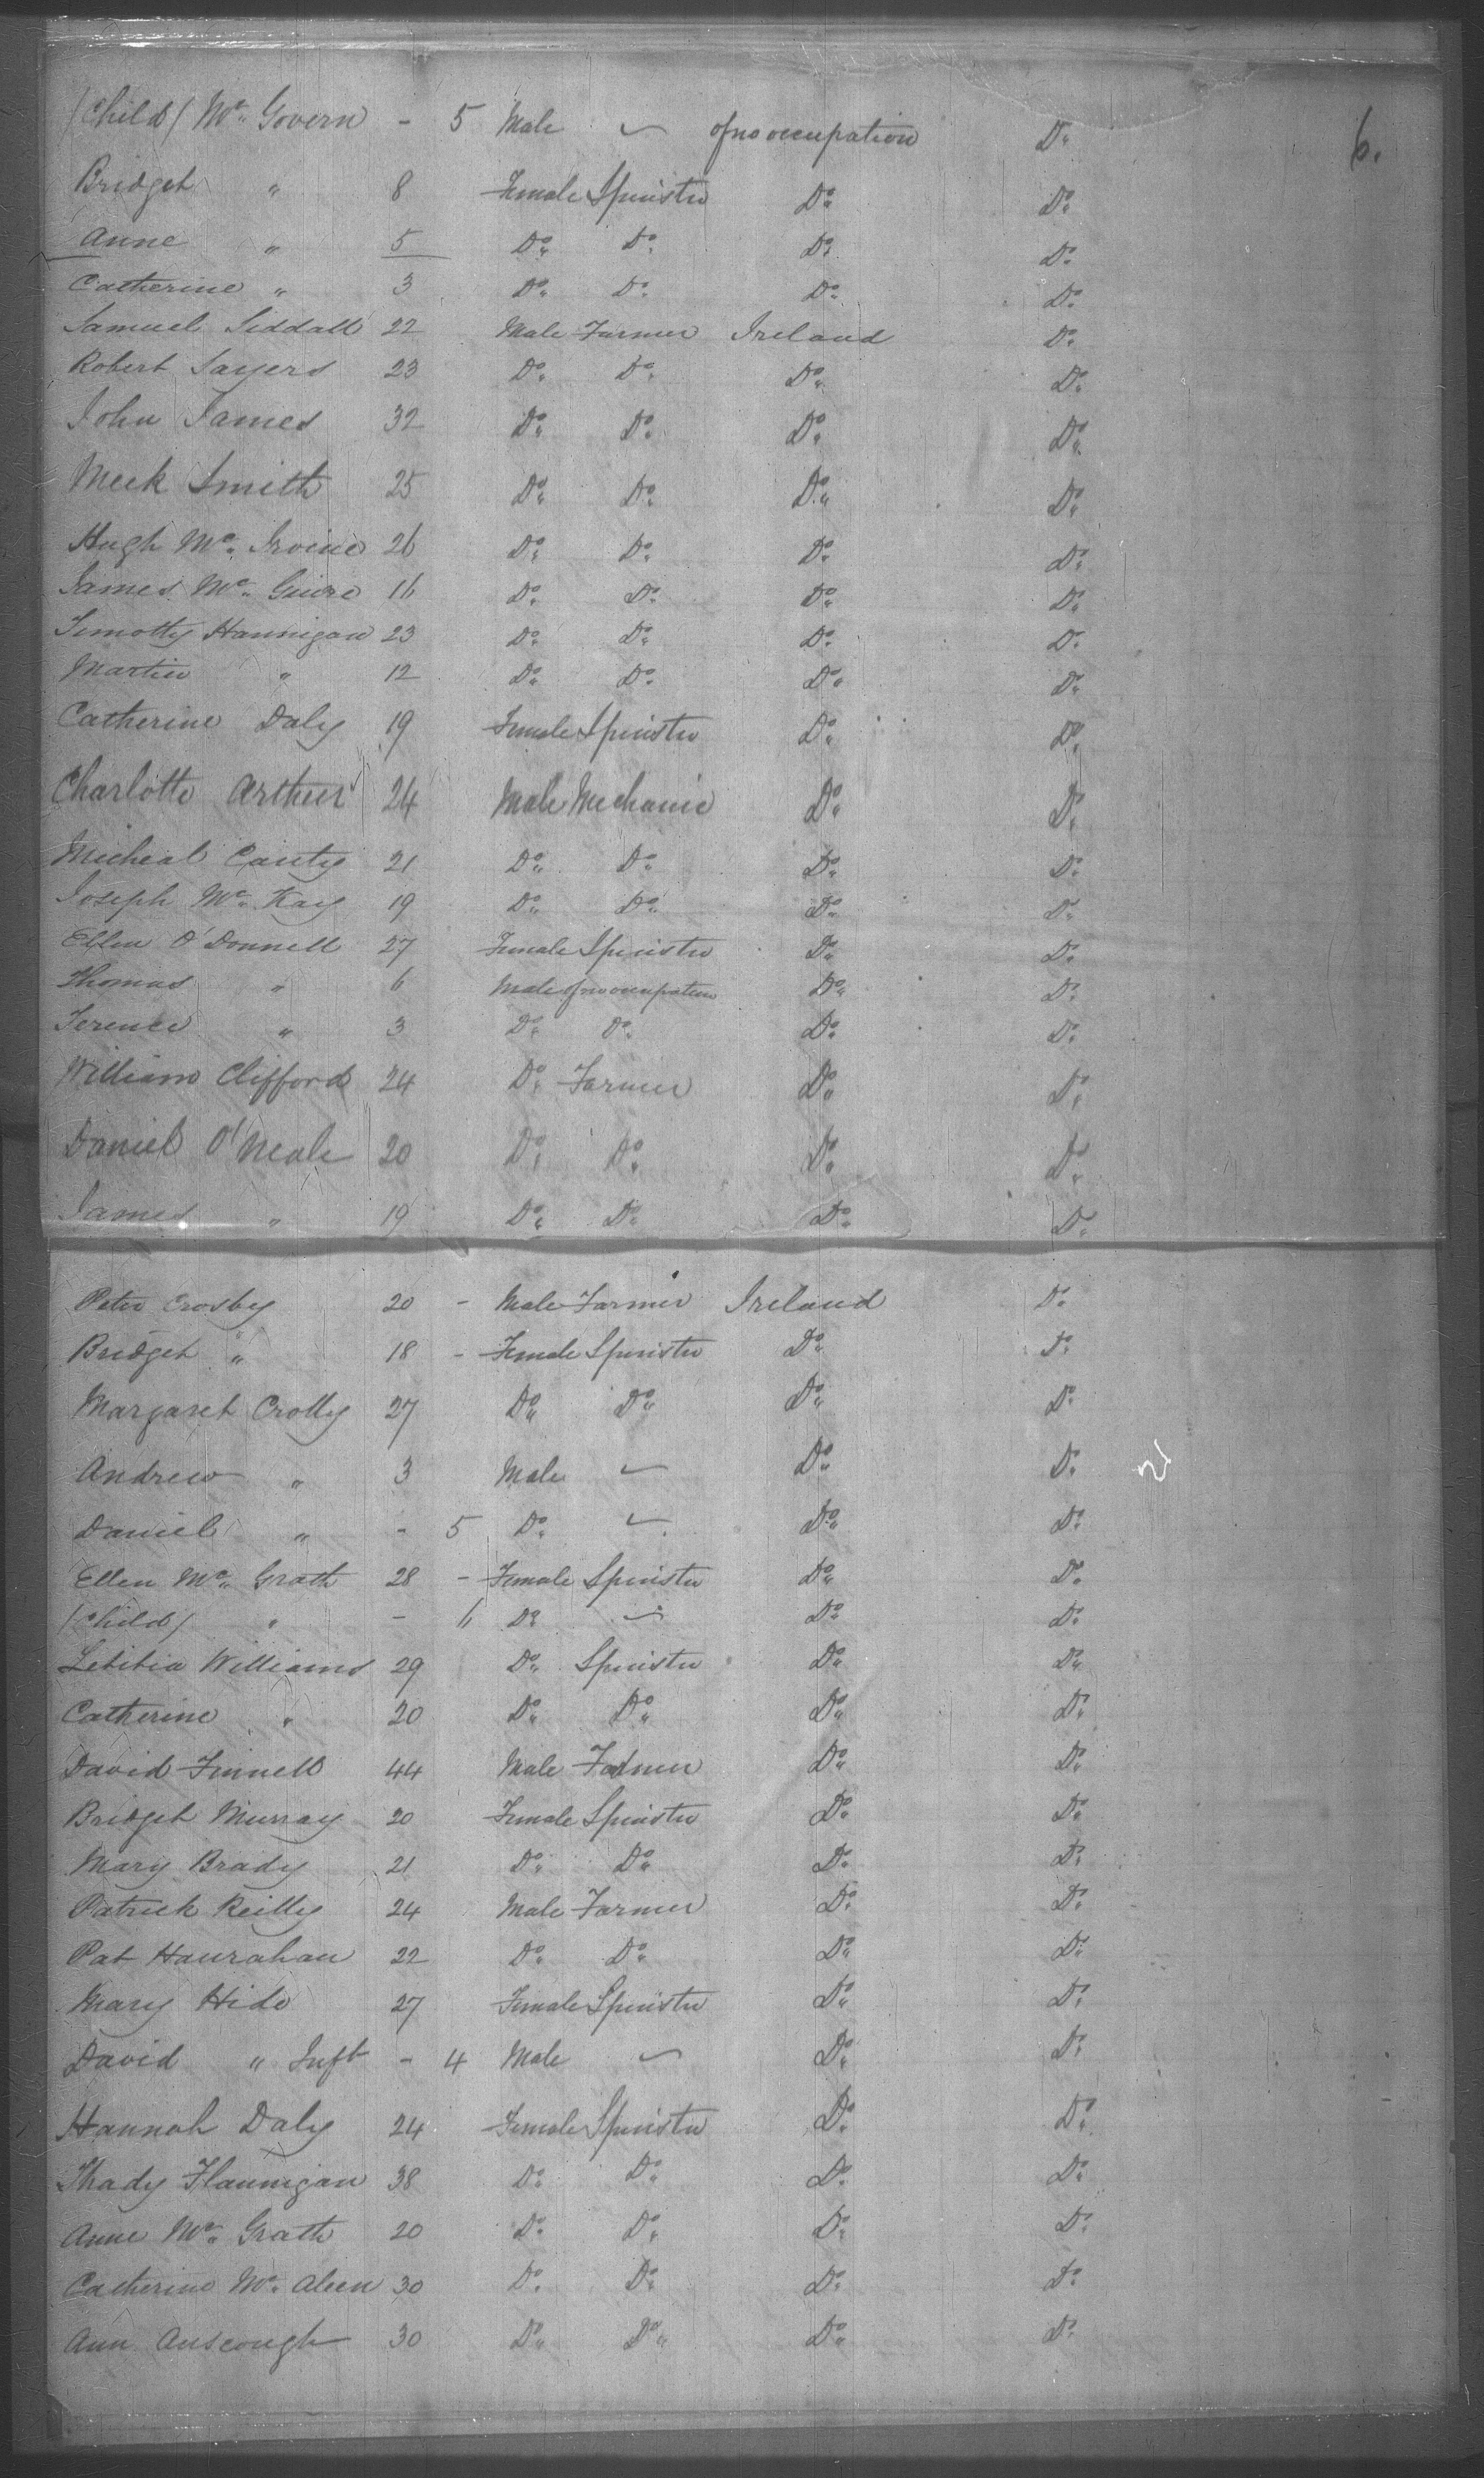 (Child) Mc. Govern - 5 Male ~ of no occupation Do. 6.
Bridget " 8 Female Spinster Do. Do.
Anne " 5 Do. Do. Do. Do.
Catherine " 3 Do. Do. Do. Do.
Samuel Siddall 22 Male Farmer Ireland Do.
Robert Sayers 23 Do. Do. Do. Do.
John James 32 Do. Do. Do. Do.
Meek Smith 25 Do. Do. Do. Do.
Hugh Mc. Irvine 26 Do. Do. Do. Do.
James Mc. Guire 16 Do. Do. Do. Do.
Timothy Hannigan 23 Do. Do. Do. Do.
Martin " 12 Do. Do. Do. Do.
Catherine Daly 19 Female Spinster Do. Do.
Charlotte Arthur 24 Male Mechanic Do. Do.
Micheal Canty 21 Do. Do. Do. Do.
Joseph Mc. Kay 19 Do. Do. Do. Do.
Ellen O'Donnell 27 Female Spinster Do. Do.
Thomas " 6 Male of no occupation Do. Do.
Terence " 3 Do. Do. Do. Do.
William Clifford 24 Do. Farmer Do. Do.
Daniel O'Neale 20 Do. Do. Do. Do.
James " 19 Do. Do. Do. Do.
Peter Crosby 20 - Male Farmer Ireland Do.
Bridget " 18 - Female Spinster Do. Do.
Margaret Crolly 27 Do. Do. Do. Do.
Andrew " 3 Male ~ Do. Do.
Daniel " - 5 Do. ~ Do. Do.
Ellen Mc. Grath 28 - Female Spinster Do. Do.
(Child) " - 6 Do. ~ Do. Do.
Letitia Williams 29 Do. Spinster Do. Do.
Catherine " 20 Do. Do. Do. Do.
David Finnell 44 Male Farmer Do. Do.
Bridget Murray 20 Female Spinster Do. Do.
Mary Brady 21 Do. Do. Do. Do.
Patrick Reilly 24 Male Farmer Do. Do.
Pat Hanrahan 22 Do. Do. Do. Do.
Mary Hide 27 Female Spinster Do. Do.
David " Inft - 4 Male ~ Do. Do.
Hannah Daly 24 Female Spinster Do. Do.
Thady Flannigan 38 Do. Do. Do. Do.
Anne Mc. Grath 20 Do. Do. Do. Do.
Catherine Mc. Aleen 30 Do. Do. Do. Do.
Ann Auscough 30 Do. Do. Do. Do.